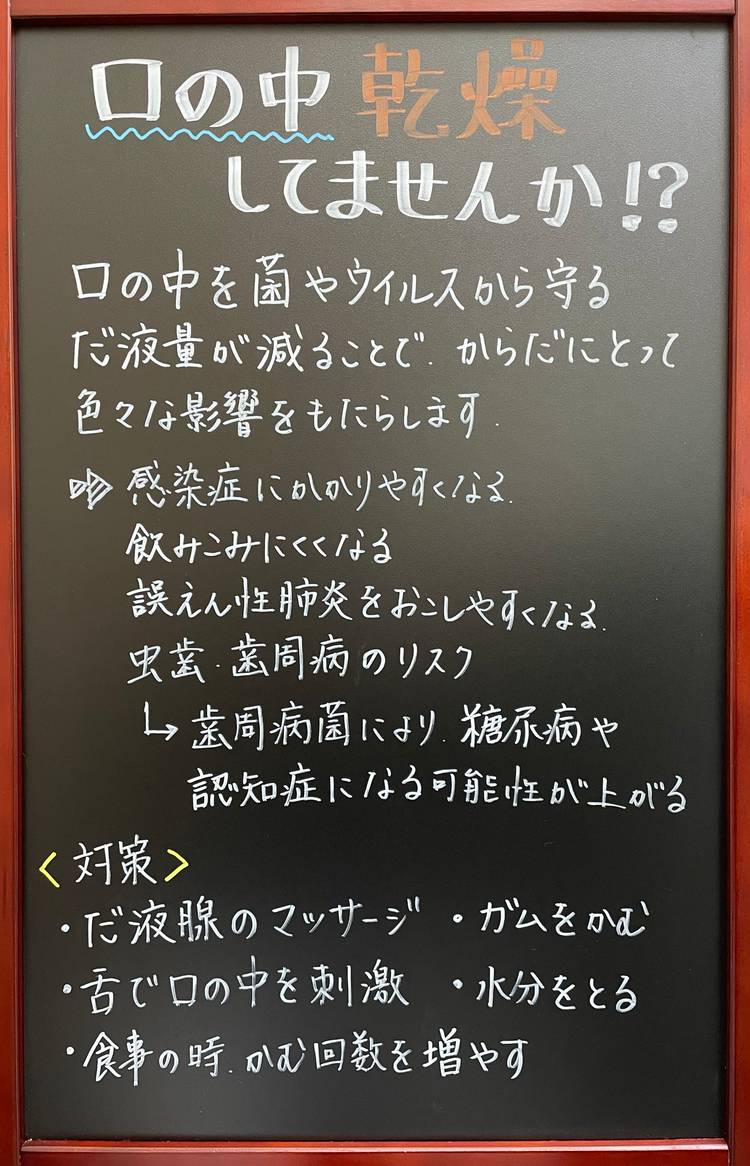 口の中 乾燥
してませんか!?
口の中を菌やウイルスから守る
だ液量が減ることで、からだにとって
色々な影響をもたらします.
感染症にかかりやすくなる.
飲みこみにくくなる
誤えん性肺炎をおこしやすくなる.
虫歯・歯周病のリスク
↳ 歯周病菌により、糖尿病や
認知症になる可能性が上がる
<対策>
・だ液腺のマッサージ ・ガムをかむ
・舌で口の中を刺激 ・水分をとる
・食事の時、かむ回数を増やす